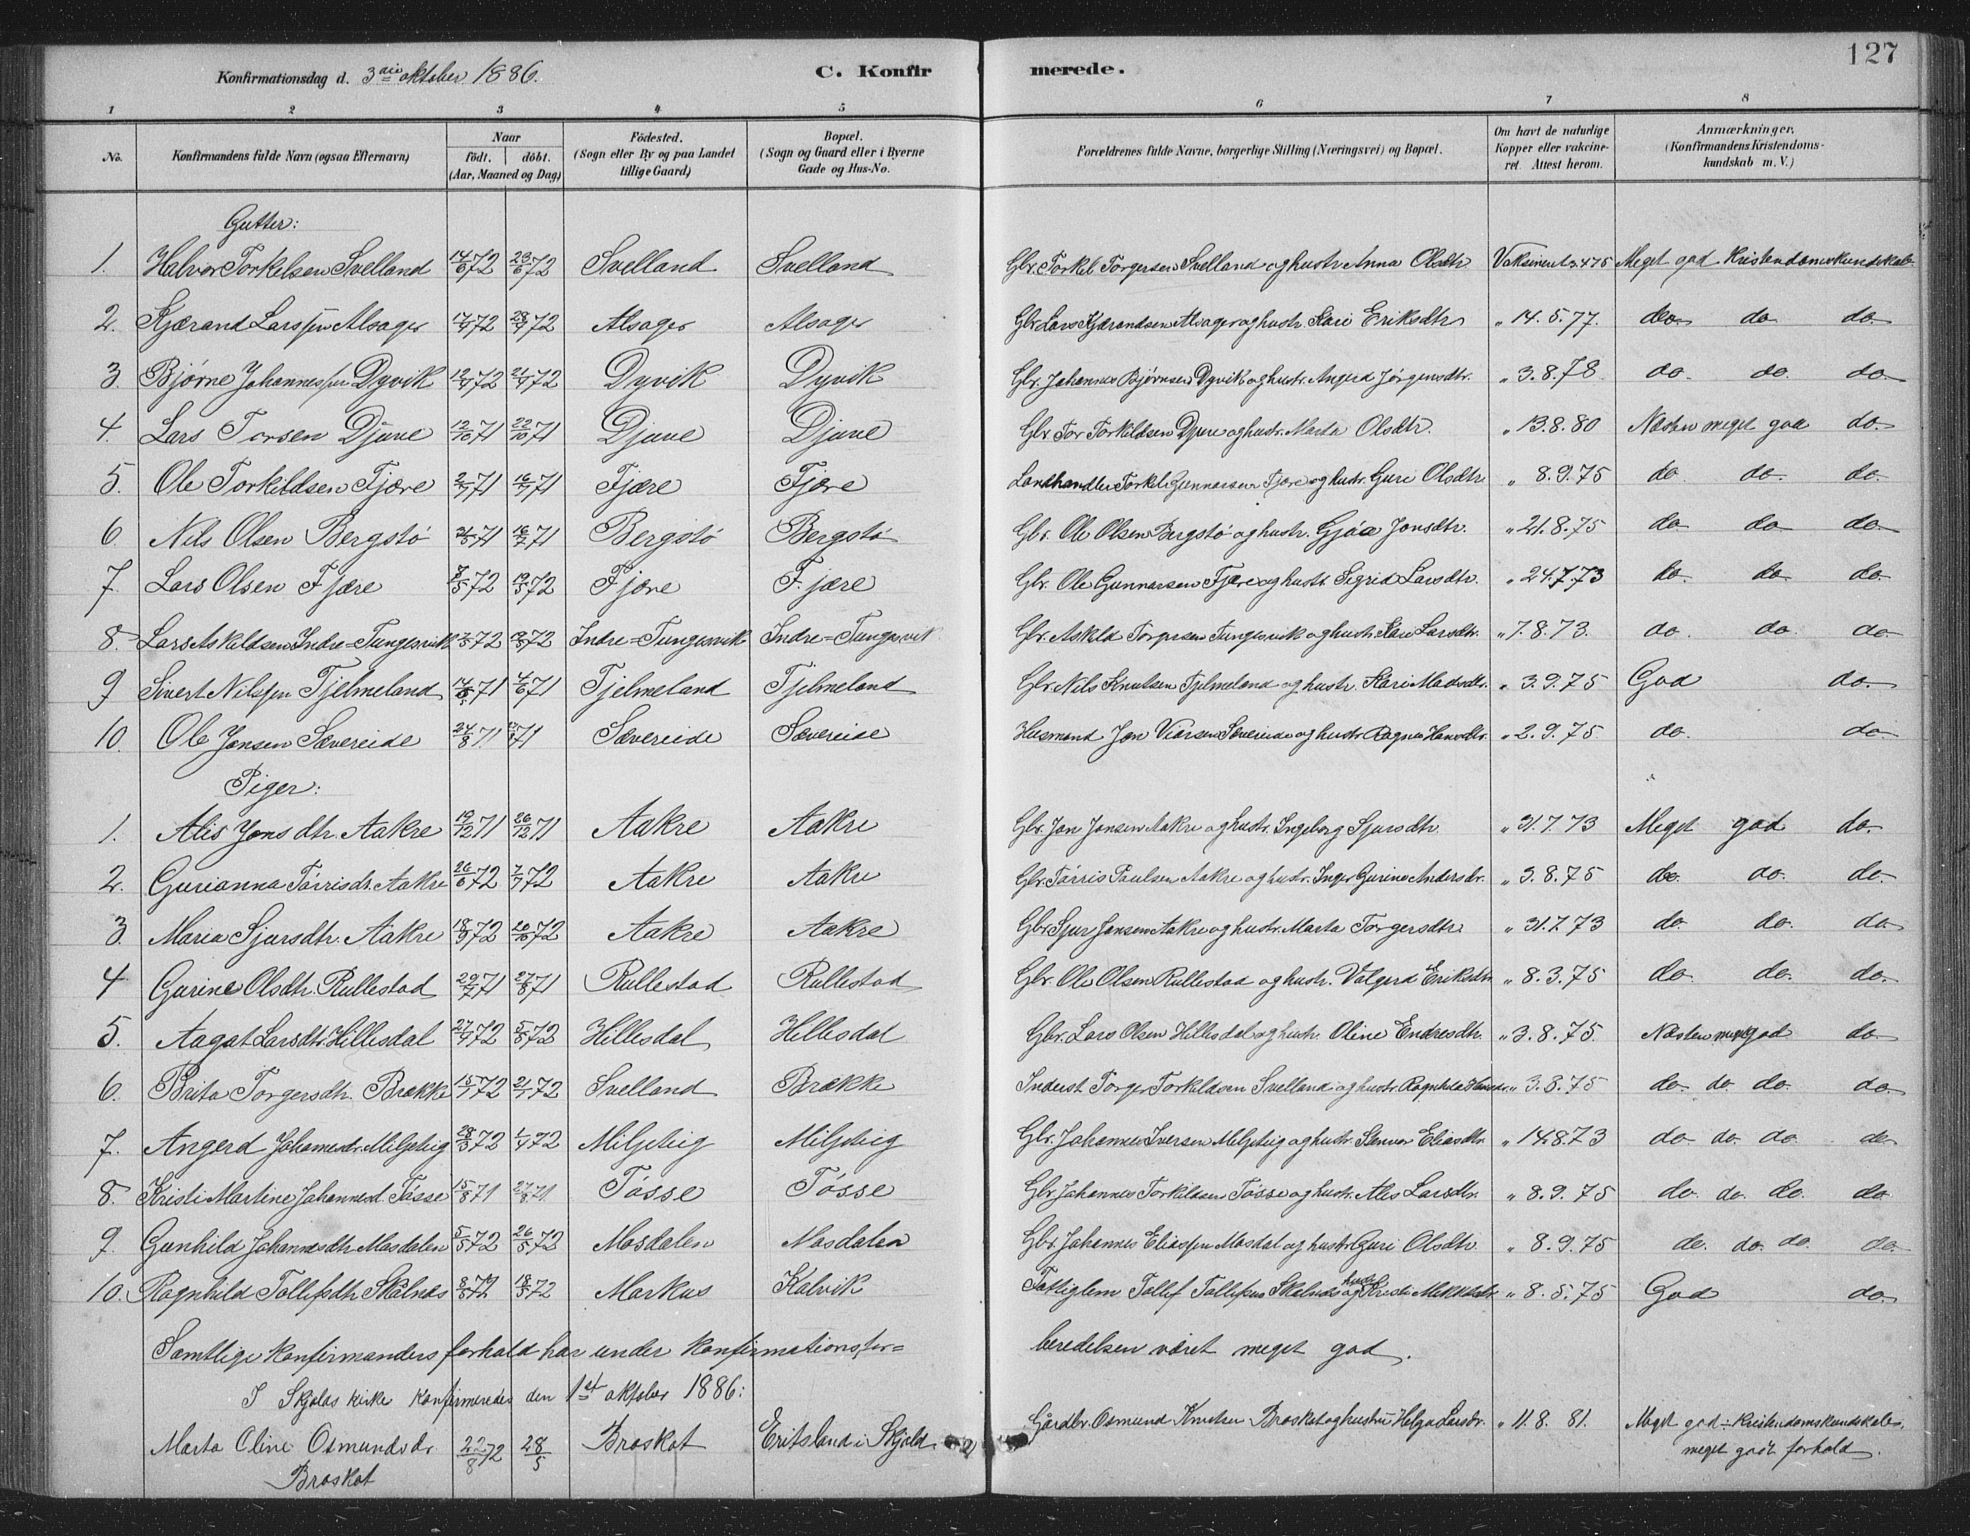 127
Konfirmationsdag d. 3die oktober 1886. C. Konfirmerede.
1 2 3 4 5 6 7 8
No. Konfirmandens fulde Navn (ogsaa Efternavn) Naar födt. döbt. (Aar, Maaned og Dag) Födested. (Sogn eller By og paa Landet tillige Gaard) Bopæl. (Sogn og Gaard eller i Byerne Gade og Hus-No. Forældrenes fulde Navne, borgerlige Stilling (Næringsvei) og Bopæl. Om havt de naturlige Kopper eller vakcineret. Attest herom. Anmærkninger. (Konfirmandens Kristendomskundskab m. V.)
Gutter:
1. Halvor Torkelsen Svelland 14/6 72 23/6 72 Svelland Svelland Gbr. Torkel Torgersen Svelland og hustr. Anna Olsdtr Meget god Kristendomskundskab
2. Kjærand Larssen Alsager 72 72 Alsager Alsager Gbr. Lars Kjærandsen Alsager og hustr. Kari Eriksdtr " 14.5.77. do do do
3. Bjørne Johannessen Dyvik 72 72 Dyvik Dyvik Gbr. Johannes Bjørnsen Dyvik og hustr. Angerd Jørgensdtr. " 3.8.78 do. do. do.
4. Lars Torsen Djuve 12/10 71 22/10 71 Djuve Djuve Gbr. Tor Torkildsen Djuve og hustr. Marta Olsdtr. " 13.8.80 Næsten meget god do.
5. Ole Torkildsen Fjære 71 71 Fjære Fjære Landhandler Torkel Gunnarsen Fjære og hustr. Guri Olsdtr " 8.9.75 do do. do.
6. Nils Olsen Bergstø 71 71 Bergstø Bergstø Gbr. Ole Olsen Bergstø og hustr. Gjøa Jonsdtr. " 21.8.75 do do do
7. Lars Olsen Fjære 72 72 Fjære Fjære Gbr. Ole Gunnarsen Fjære og hustr. Sigrid Larsdtr. " 24.7.73 do. do. do.
8. Lars Askildsen Indre=Tungesvik 72 72 Indre=Tungesvik Indre=Tungesvik Gbr. Askild Torgersen Tungesvik og hustr. Kari Larsdtr. " 7.8.73. do. do. do
9 Sivert Nilssen Tjelmeland 71 4/6 71 Tjelmeland Tjelmeland Gbr. Nils Knutsen Tjelmeland og hustr. Kari Madsdtr. " 3.9.75 God do.
10. Ole Jonsen Sævereide 24/8 71 71 Sævereide Sævereide Husmand Jon Sævereide og hustr. Ragna Hansdtr. " 2.9.75. do. do.
Piger:
1. Alis Jonsdtr. Aakre 19/12 71 26/12 71 Aakre Aakre Gbr. Jon Jonsen Aakre og hustr. Ingeborg Sjursdtr. " 31.7 73 Meget god do.
2. Gurianna Tørrisdtr. Aakre 26/6 72 7/7 72 Aakre Aakre Gbr. Tørris Paulsen Aakre og hustr. Inger Gurine Andersdtr. " 3.8.75 do. do. do.
3. Maria Sjursdtr. Aakre 18/9 72 72 Aakre Aakre Gbr. Sjur Jonsen Aakre og hustr. Marta Torgersdtr. " 31.7.73 do. do. do
4 Gurine Olsdtr. Rullestad 29/7 71 27/8 71 Rullestad Rullestad Gbr. Ole Olsen Rullestad og hustr. Valgerd Eriksdtr " 8.3.75 do. do. do.
5. Aagat Larsdtr Hillesdal 72 72 Hillesdal Hillesdal Gbr. Lars Olsen Hillesdal og hustr. Oline Endresdtr. " 3.8.75. Næsten meget god do.
6. Brita Torgersdtr. Brække 72 72 Svelland Brække Inderst Torger Torkildsen Svelland og hustr. Ragnhild " 3.8.75 do. do. do. do.
7. Angerd Johannesdtr. Miljeteig 28/3 72 72 Miljeteig Miljeteig Gbr. Johannes Iversen Miljeteig og hustr. Eliasdtr. " 14.8.73 do. do. do. do
8. Kristi Martine Johannesd. Tøsse 15/8 71 27/8 71 Tøsse Tøsse Gbr. Johannes Torkildsen Tøsse og hustr. Alis Larsdtr. " 8.9.75 do. do. do. do
9. Gunhild Johannesdtr. Mosdalen 5/5 72 26/5 72 Mosdalen Mosdalen Gbr. Johannes Eliassen Mosdal og hustr. Guri Olsdtr. " 8.9.75 do. do. do. do.
10. Ragnhild Tollefsdtr. Skålnæs 72 72 Markus Kalvik Fattiglem Tollef Tollefsen Skålnæs og hustr. Kristi " 8.5.75 God do.
Samtlige konfirmanders forhold har under konfirmationsfor= beredelsen været meget god.
I Skjolds kirke konfirmeredes den 1st oktober 1886:
Marta Oline Osmundsdr. Broskot 22/8 72 28/5 Broskot Eritsland i Skjold Gårdbr. Osmund Knutsen Broskot og hustru Helga Larsdr. " 11.8.81. Meget god kristendomskundskab, meget godt forhold.